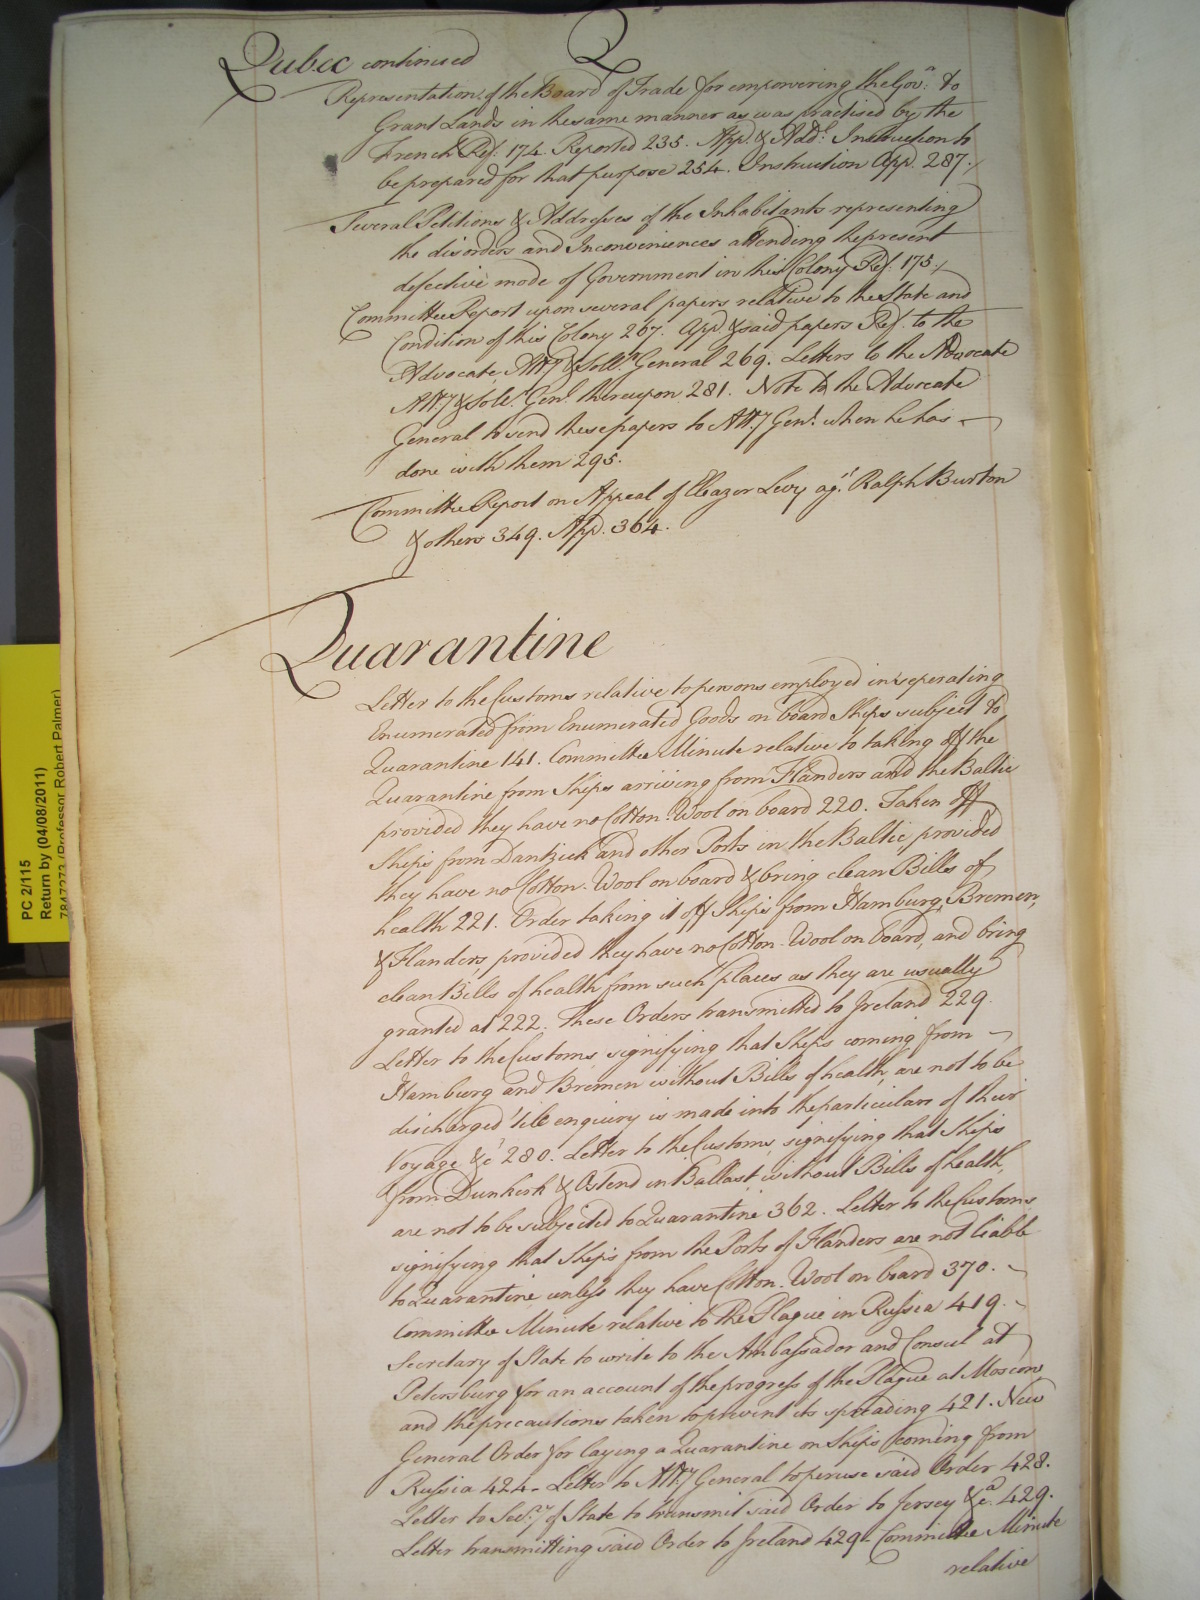 Q
Qubec continued
Representation, of the Board of Trade for empowering the Gov.r to
Grant Lands in the same manner as was practised by the
French Ref. 174. Reported 235. App. & Add.l Instruction to
be prepared for that purpose 254. Instruction App. 287./
Several Petitions & Addresses of the Inhabitants representing
the disorders and Inconveniences attending the present
defective mode of Government in this Colony Ref. 175./
Committee Report upon several papers relative to the State and
Condition of this Colony 267. App. & said papers Ref. to the
Advocate, Att.y & Soll.r General 269. Letters to the Advocate
Att.y & Sol.r Gen.l thereupon 281. Note to the Advocate
General to send these papers to Att.y Gen.l when he has
done with them 295.
Committee Report on Appeal of Eleazor Levy ag.t Ralph Burton
& others 349. App. 364.
Quarantine
Letter to the Customs relative to persons employed in seperating
Enumerated from Enumerated Goods on board Ships subject to
Quarantine 141. Committee Minute relative to taking off the
Quarantine from Ships arriving from Flanders and the Baltic
provided they have no Cotton Wool on board 220. Taken off
Ships from Dantzick and other Ports in the Baltic, provided
they have no Cotton-Wool on board & bring clean Bills of
health 221. Order taking it off Ships from Hamburg, Bremen,
& Flanders provided they have no Cotton-Wool on board, and bring
clean Bills of health from such places as they are usually
granted at 222. These Orders transmitted to Ireland 229.
Letter to the Customs, signifying that Ships coming from
Hamburg and Bremen without Bills of health, are not to be
discharged 'till enquiry is made into the particulars of their
Voyage &c 280. Letter to the Customs, signifying that Ships
from Dunkirk & Ostend in Ballast, without Bills of health,
are not to be subjected to Quarantine 362. Letter to the Customs
signifying that Ships from the Ports of Flanders are not liable
to Quarantine, unless they have Cotton-Wool on board 370.
Committee Minute relative to the Plague in Russia 419.
Secretary of State to write to the Ambassador and Consul at
Petersburg for an account of the progress of the Plague at Moscow
and the precautions taken to prevent its spreading 421. New
General Order for laying a Quarantine on Ships coming from
Russia 424. Letter to Att.y General to peruse said Order 428.
Letter to Sec.ry of State to transmit said Order to Jersey &c.a 429.
Letter transmitting said Order to Ireland 429. Committee Minute
relative
PC 2/115
Return by (04/08/2011)
(Professor Robert Palmer)